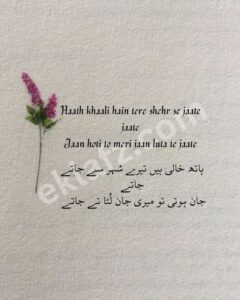 Haath khaali hain tere shehr se jaate
jaate
Jaan hoti to meri jaan luta te jaate
ہاتھ خالی ہیں تیرے شہر سے جاتے
جاتے
جان ہوتی تو میری جان لُٹا تے جاتے
ekiatz.com